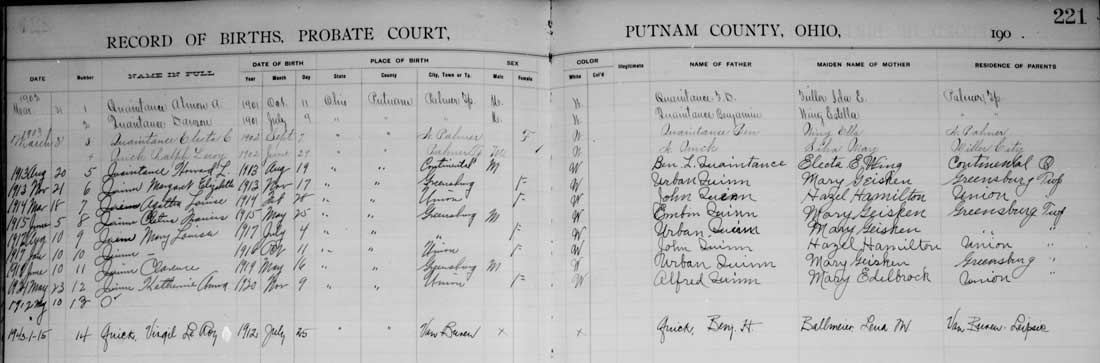 221
RECORD OF BIRTHS, PROBATE COURT, PUTNAM COUNTY, OHIO, 190 .
DATE Number NAME IN FULL DATE OF BIRTH PLACE OF BIRTH SEX COLOR Illegitimate NAME OF FATHER MAIDEN NAME OF MOTHER RESIDENCE OF PARENTS
Year Month Day State County City, Town or Tp. Male Female White Col'd
1903 31 1 Quaintance Almon A 1901 Oct. 11 Ohio Putnam Palmer Tp M. W. Quaintance Ida E. Palmer Tp
2 Quaintance 1901 July 9 " " " M. W. Quaintance Benjamin Wing Edella "
1903 March 31 3 Quaintance Electa C 1902 Sept 7 " " Palmer F W Quaintance Ben Wing Ella Palmer
4 Quick Ralph Leroy 1902 June 29 " " Palmer W Quick May Miller City
1913 Aug 20 5 Quaintance Howard L. 1913 Aug 19 " " Continental M W Ben L. Quaintance Electa E. Wing Continental O
1913 Nov 21 6 Quinn Margaret Elizabeth 1913 Nov 17 " " Greensburg F W Urban Quinn Mary Geisken Greensburg Twp
1914 Mar 18 7 Agatha Louise 1914 Feb 28 " " Union F W John Quinn Hazel Hamilton Union "
1915 June 5 8 Quinn Francis 1915 May 25 " " Greensburg M W Quinn Mary Geisken Greensburg Twp
10 9 Quinn Mary Louisa 1917 July 4 " " " F W Urban Quinn Mary Geisken " "
1917 10 10 Quinn – 1916 Oct 11 " " Union F W John Quinn Hazel Hamilton Union "
1919 June 10 11 Quinn Clarence 1919 May 16 " " Greensburg M W Urban Quinn Mary Geisken Greensburg "
1921 May 23 12 Quinn Katherine Anna 1920 Nov 9 " " Union F W Alfred Quinn Mary Edelbrock Union "
10 13
1943-1-15 14 Quick, Virgil Le Roy 1912 July 25 " " Van Buren x x Quick, Benj. H Ballmeier Lena M Van Buren - Leipsic